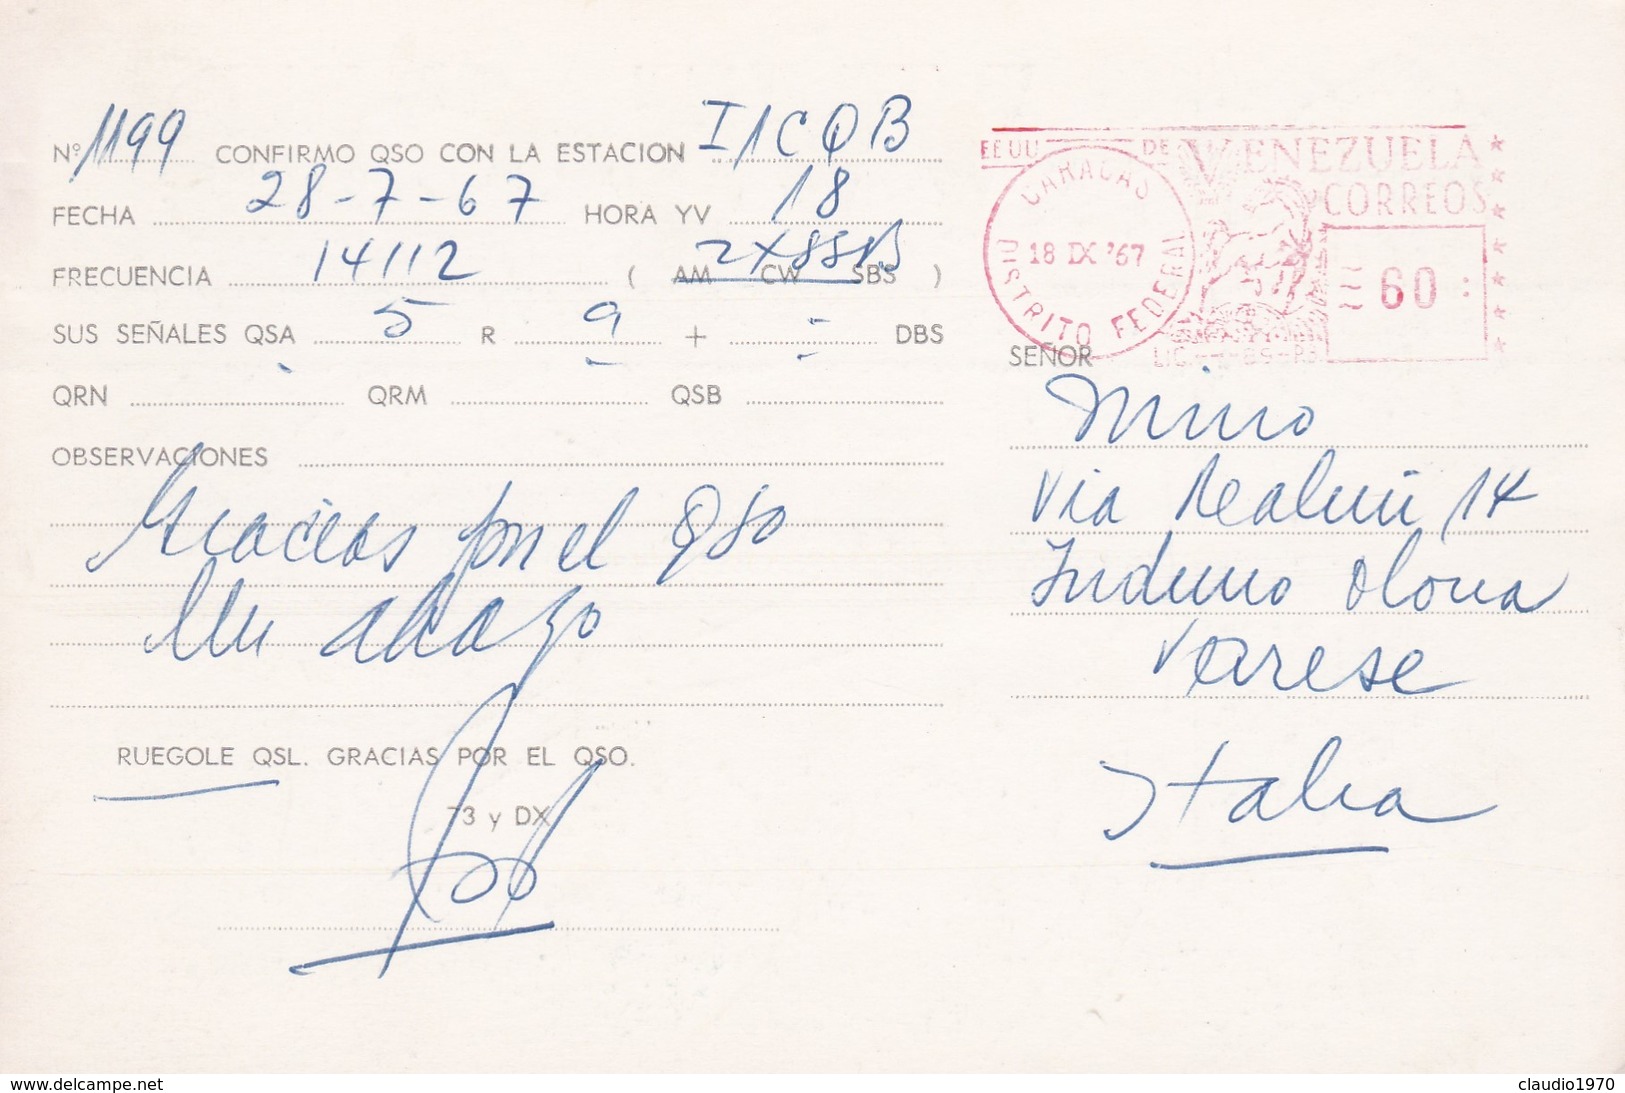 Nº 1199 CONFIRMO QSO CON LA ESTACION I1CQB
FECHA 28-7-67 HORA YV 18
FRECUENCIA 14112 ( AM CW SBS ) 2XSSB
SUS SEÑALES QSA 5 R 9 + - DBS
QRN QRM QSB
OBSERVACIONES
Gracias por el QSO
Un abrazo
RUEGOLE QSL. GRACIAS POR EL QSO.
73 y DX
EEUU DE VENEZUELA
CORREOS
CARACAS
18 IX '67
DISTRITO FEDERAL
60
SEÑOR
Mino
Via 14
Induno Olona
Varese
Italia
www.delcampe.net
claudio1970